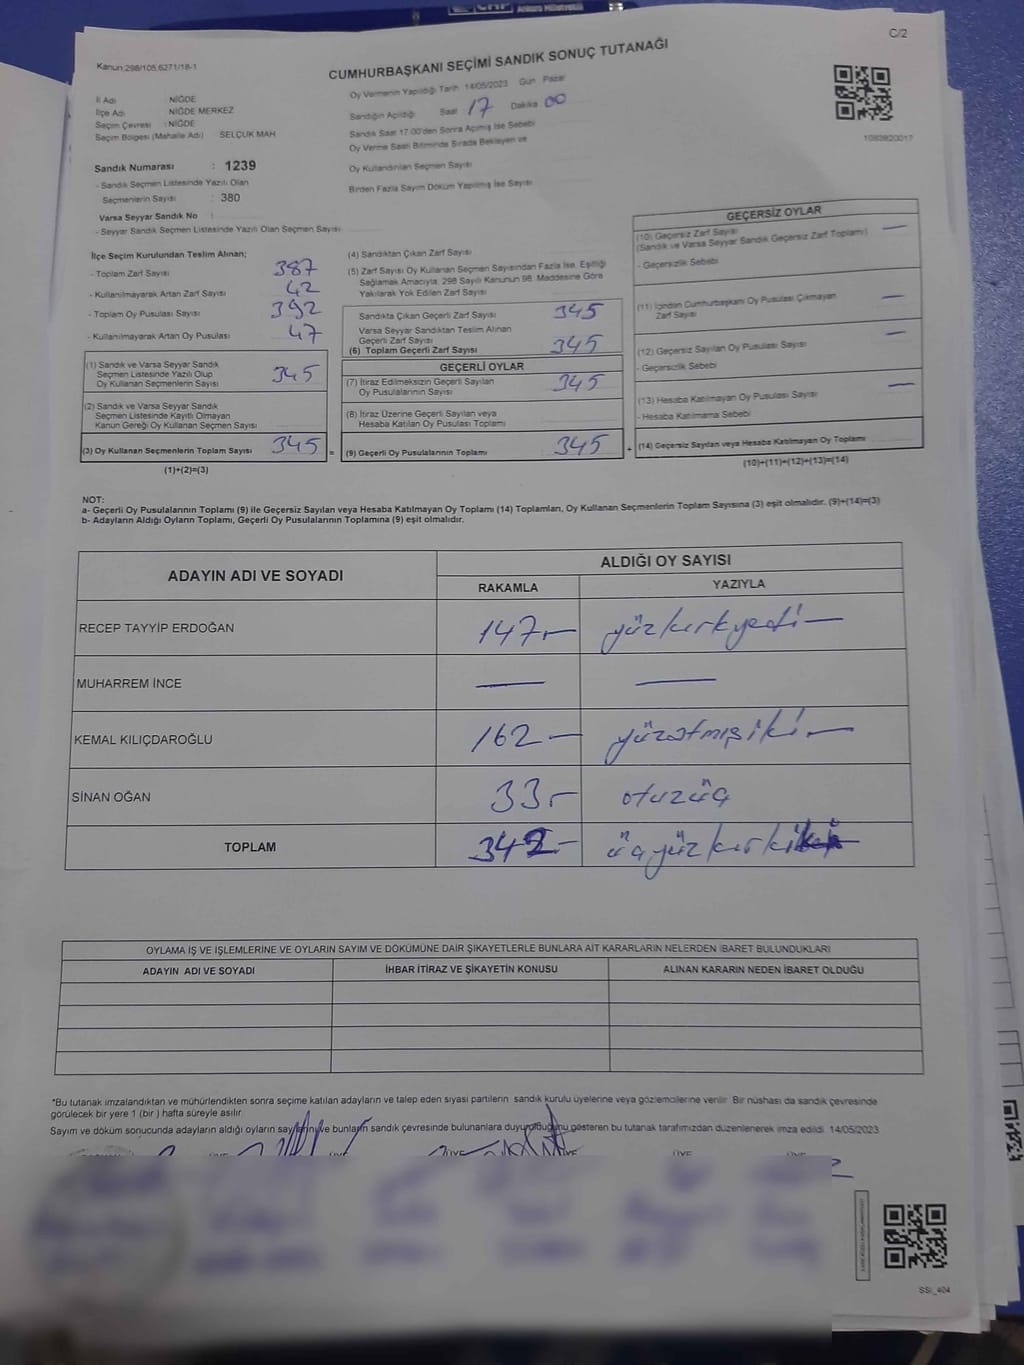 C/2
Kanun:298/105,6271/18-1
CUMHURBAŞKANI SEÇİMİ SANDIK SONUÇ TUTANAĞI
İl Adı NİĞDE
İlçe Adı NİĞDE MERKEZ
Seçim Çevresi : NİĞDE
Seçim Bölgesi (Mahalle Adı) SELÇUK MAH
Sandık Numarası : 1239
- Sandık Seçmen Listesinde Yazılı Olan
Seçmenlerin Sayısı : 380
Varsa Seyyar Sandık No :
- Seyyar Sandık Seçmen Listesinde Yazılı Olan Seçmen Sayısı
Oy Vermenin Yapıldığı Tarih 14/05/2023 Gün Pazar
Sandığın Açıldığı Saat 17 Dakika 00
Sandık Saat 17.00'den Sonra Açılmış İse Sebebi
Oy Verme Saati Bitiminde Sırada Bekleyen ve
Oy Kullandırılan Seçmen Sayısı
Birden Fazla Sayım Döküm Yapılmış İse Sayısı
1083820017
İlçe Seçim Kurulundan Teslim Alınan;
- Toplam Zarf Sayısı 387
- Kullanılmayarak Artan Zarf Sayısı 42
- Toplam Oy Pusulası Sayısı 392
- Kullanılmayarak Artan Oy Pusulası 47
(1) Sandık ve Varsa Seyyar Sandık
Seçmen Listesinde Yazılı Olup
Oy Kullanan Seçmenlerin Sayısı 345
(2) Sandık ve Varsa Seyyar Sandık
Seçmen Listesinde Kayıtlı Olmayan
Kanun Gereği Oy Kullanan Seçmen Sayısı
(3) Oy Kullanan Seçmenlerin Toplam Sayısı 345 =
(1)+(2)=(3)
(4) Sandıktan Çıkan Zarf Sayısı
(5) Zarf Sayısı Oy Kullanan Seçmen Sayısından Fazla İse, Eşitliği
Sağlamak Amacıyla, 298 Sayılı Kanunun 98. Maddesine Göre
Yakılarak Yok Edilen Zarf Sayısı
Sandıkta Çıkan Geçerli Zarf Sayısı 345
Varsa Seyyar Sandıktan Teslim Alınan
Geçerli Zarf Sayısı
(6) Toplam Geçerli Zarf Sayısı 345
GEÇERLİ OYLAR
(7) İtiraz Edilmeksizin Geçerli Sayılan
Oy Pusulalarının Sayısı 345
(8) İtiraz Üzerine Geçerli Sayılan veya
Hesaba Katılan Oy Pusulası Toplamı
(9) Geçerli Oy Pusulalarının Toplamı 345 +
GEÇERSİZ OYLAR
(10) Geçersiz Zarf Sayısı —
(Sandık ve Varsa Seyyar Sandık Geçersiz Zarf Toplamı)
- Geçersizlik Sebebi
(11) İçinden Cumhurbaşkanı Oy Pusulası Çıkmayan —
Zarf Sayısı
(12) Geçersiz Sayılan Oy Pusulası Sayısı —
- Geçersizlik Sebebi
(13) Hesaba Katılmayan Oy Pusulası Sayısı —
- Hesaba Katılmama Sebebi
(14) Geçersiz Sayılan veya Hesaba Katılmayan Oy Toplamı
(10)+(11)+(12)+(13)=(14)
NOT:
a- Geçerli Oy Pusulalarının Toplamı (9) ile Geçersiz Sayılan veya Hesaba Katılmayan Oy Toplamı (14) Toplamları, Oy Kullanan Seçmenlerin Toplam Sayısına (3) eşit olmalıdır. (9)+(14)=(3)
b- Adayların Aldığı Oyların Toplamı, Geçerli Oy Pusulalarının Toplamına (9) eşit olmalıdır.
ADAYIN ADI VE SOYADI ALDIĞI OY SAYISI
RAKAMLA YAZIYLA
RECEP TAYYİP ERDOĞAN 147— yüzkırkyedi—
MUHARREM İNCE — —
KEMAL KILIÇDAROĞLU 162— yüzatmışiki—
SİNAN OĞAN 33— otuzüç
TOPLAM 342— üçyüzkırkiki
OYLAMA İŞ VE İŞLEMLERİNE VE OYLARIN SAYIM VE DÖKÜMÜNE DAİR ŞİKAYETLERLE BUNLARA AİT KARARLARIN NELERDEN İBARET BULUNDUKLARI
ADAYIN ADI VE SOYADI İHBAR İTİRAZ VE ŞİKAYETİN KONUSU ALINAN KARARIN NEDEN İBARET OLDUĞU
*Bu tutanak imzalandıktan ve mühürlendikten sonra seçime katılan adayların ve talep eden siyasi partilerin sandık kurulu üyelerine veya gözlemcilerine verilir. Bir nüshası da sandık çevresinde
görülecek bir yere 1 (bir) hafta süreyle asılır
Sayım ve döküm sonucunda adayların aldığı oyların sayılarını ve bunların sandık çevresinde bulunanlara duyurulduğunu gösteren bu tutanak tarafımızdan düzenlenerek imza edildi. 14/05/2023
ÜYE ÜYE ÜYE ÜYE ÜYE ÜYE
SSI_404